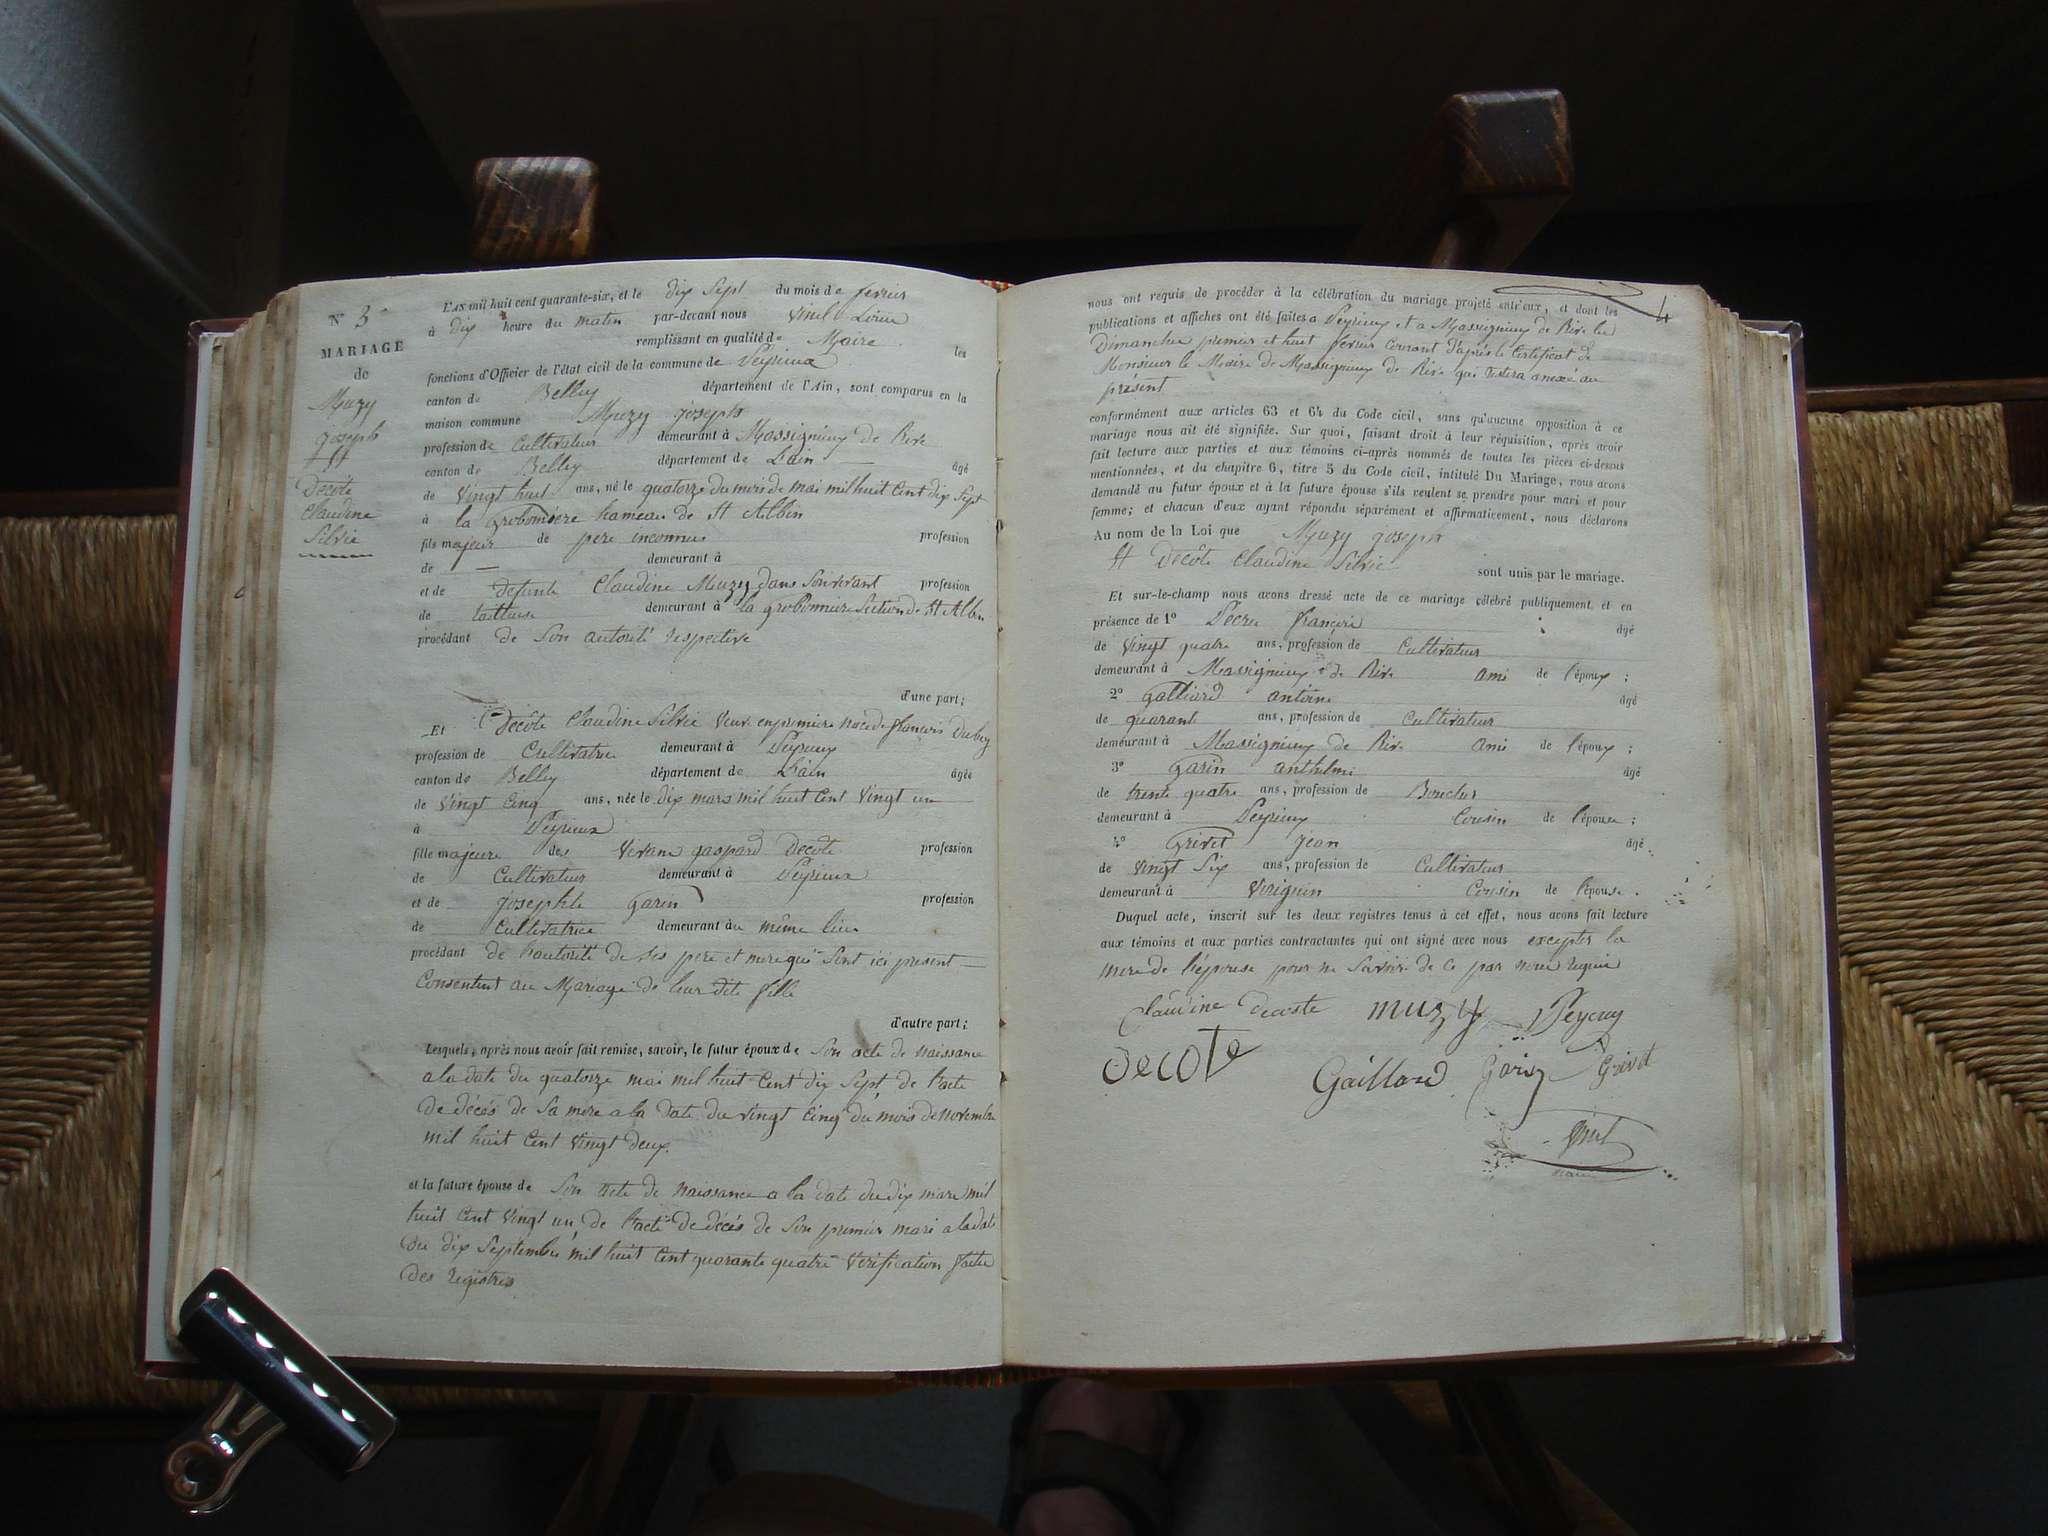 N° 3
MARIAGE
de
Muzy
joseph
Decôte
Claudine
Silvie
L'AN mil huit cent quarante-six, et le dix sept du mois de fevrier
à dix heure du matin par-devant nous
remplissant en qualité de Maire les
fonctions d'Officier de l'état civil de la commune de Peyrieux
canton de Belley département de l'Ain, sont comparus en la
maison commune Muzy joseph
profession de Cultivateur demeurant à Massignieux de Rive
canton de Belley département de L'ain âgé
de vingt huit ans, né le quatorze du mois de mai mil huit Cent dix Sept
à la grobonniere hameau de St Albin
fils majeur de pere inconnu profession
de — demeurant à
et de defunte Claudine Muzy dans Son vivant profession
de tailleuse demeurant à la grobonniere Section de St Albin
procédant de Son autorité respective
d'une part;
Et Decôte Claudine Silvie Veuve en premiere noce de francois Dubuy
profession de Cultivatrice demeurant à Peyrieux
canton de Belley département de L'ain âgée
de vingt Cinq ans, née le dix mars mil huit Cent vingt un
à Peyrieux
fille majeure des vivant gaspard Decôte profession
de Cultivateur demeurant à Peyrieux
et de josephte garin profession
de Cultivatrice demeurant au même lieu
procédant de l'autorité de Ses pere et mere qui Sont ici present
Consentent au Mariage de leur dite fille
d'autre part;
Lesquels, après nous avoir fait remise, savoir, le futur époux de Son acte de naissance
a la date du quatorze mai mil huit Cent dix Sept de l'acte
de décés de Sa mere a la date du vingt Cinq du mois de novembre
mil huit Cent vingt deux.
et la future épouse de Son acte de naissance a la date du dix mars mil
huit Cent vingt un, de l'acte de décés de Son premier mari a la date
du dix Septembre mil huit Cent quarante quatre Vérification faite
des registres.
4
nous ont requis de procéder à la célébration du mariage projeté entr'eux, et dont les
publications et affiches ont été faites a Peyrieux et a Massignieux de Rive les
Dimanches premier et huit fevrier Courant d'après le Certificat de
Monsieur le Maire de Massignieux de Rive qui restera annexé au
présent
conformément aux articles 63 et 64 du Code civil, sans qu'aucune opposition à ce
mariage nous ait été signifiée. Sur quoi, faisant droit à leur réquisition, après avoir
fait lecture aux parties et aux témoins ci-après nommés de toutes les pièces ci-dessus
mentionnées, et du chapitre 6, titre 5 du Code civil, intitulé Du Mariage, nous avons
demandé au futur époux et à la future épouse s'ils veulent se prendre pour mari et pour
femme; et chacun d'eux ayant répondu séparément et affirmativement, nous déclarons
Au nom de la Loi que Muzy joseph
et Decôte Claudine Silvie sont unis par le mariage.
Et sur-le-champ nous avons dressé acte de ce mariage célébré publiquement et en
présence de 1° françois âgé
de vingt quatre ans, profession de Cultivateur
demeurant à Massignieux de Rive ami de l'époux;
2° galliard antoine âgé
de quarante ans, profession de Cultivateur
demeurant à Massignieux de Rive ami de l'époux;
3° garin anthelme âgé
de trente quatre ans, profession de Boucher
demeurant à Peyrieux Cousin de l'épouse;
4° Grivet jean âgé
de vingt Six ans, profession de Cultivateur
demeurant à Virignin Cousin de l'épouse.
Duquel acte, inscrit sur les deux registres tenus à cet effet, nous avons fait lecture
aux témoins et aux parties contractantes qui ont signé avec nous excepter la
mere de l'épouse pour ne Savoir de ce par nous requise
Claudine decoste muzy
Decote Gaillard garin Grivet
maire